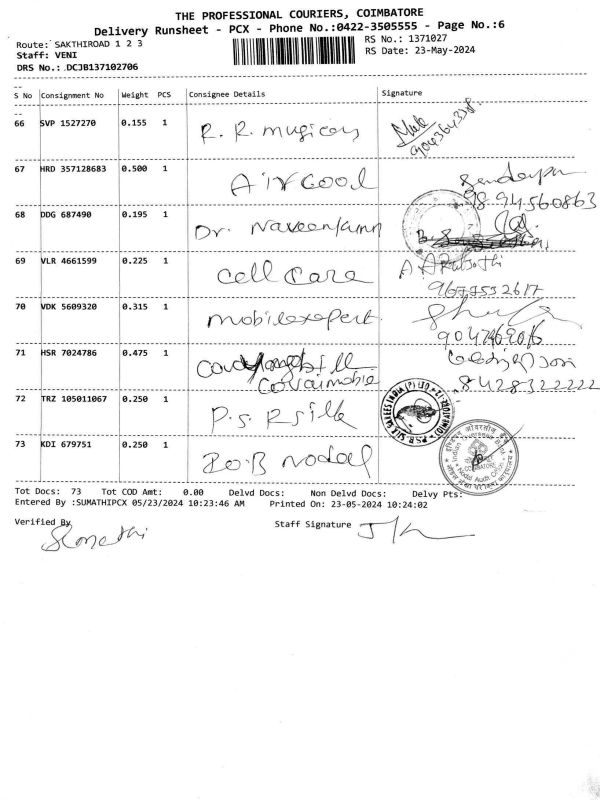 THE PROFESSIONAL COURIERS, COIMBATORE
Delivery Runsheet - PCX - Phone No.:0422-3505555 - Page No.:6
Route: SAKTHIROAD 1 2 3
RS No.: 1371027
Staff: VENI
RS Date: 23-May-2024
DRS No.: DCJB137102706
S No Consignment No Weight PCS Consignee Details Signature
66 SVP 1527270 0.155 1 R. R. mugicaus
9043643378
67 HRD 357128683 0.500 1 Air Cool
9894560863
68 DDG 687490 0.195 1 Dr. Naveenkumn
69 VLR 4661599 0.225 1 Cell Care
9677532617
70 VDK 5609320 0.315 1 mobilexepert.
9047469016
71 HSR 7024786 0.475 1
Covaimobie
8428322222
72 TRZ 105011067 0.250 1 P.S.R silk
P.S.R. SILK SAREES INDIA (P) LTD
73 KDI 679751 0.250 1 I.O.B Nodal
Indian Overseas Bank
COIMBATORE
Tot Docs: 73 Tot COD Amt: 0.00 Delvd Docs: Non Delvd Docs: Delvy Pts:
Entered By :SUMATHIPCX 05/23/2024 10:23:46 AM Printed On: 23-05-2024 10:24:02
Verified By
Staff Signature